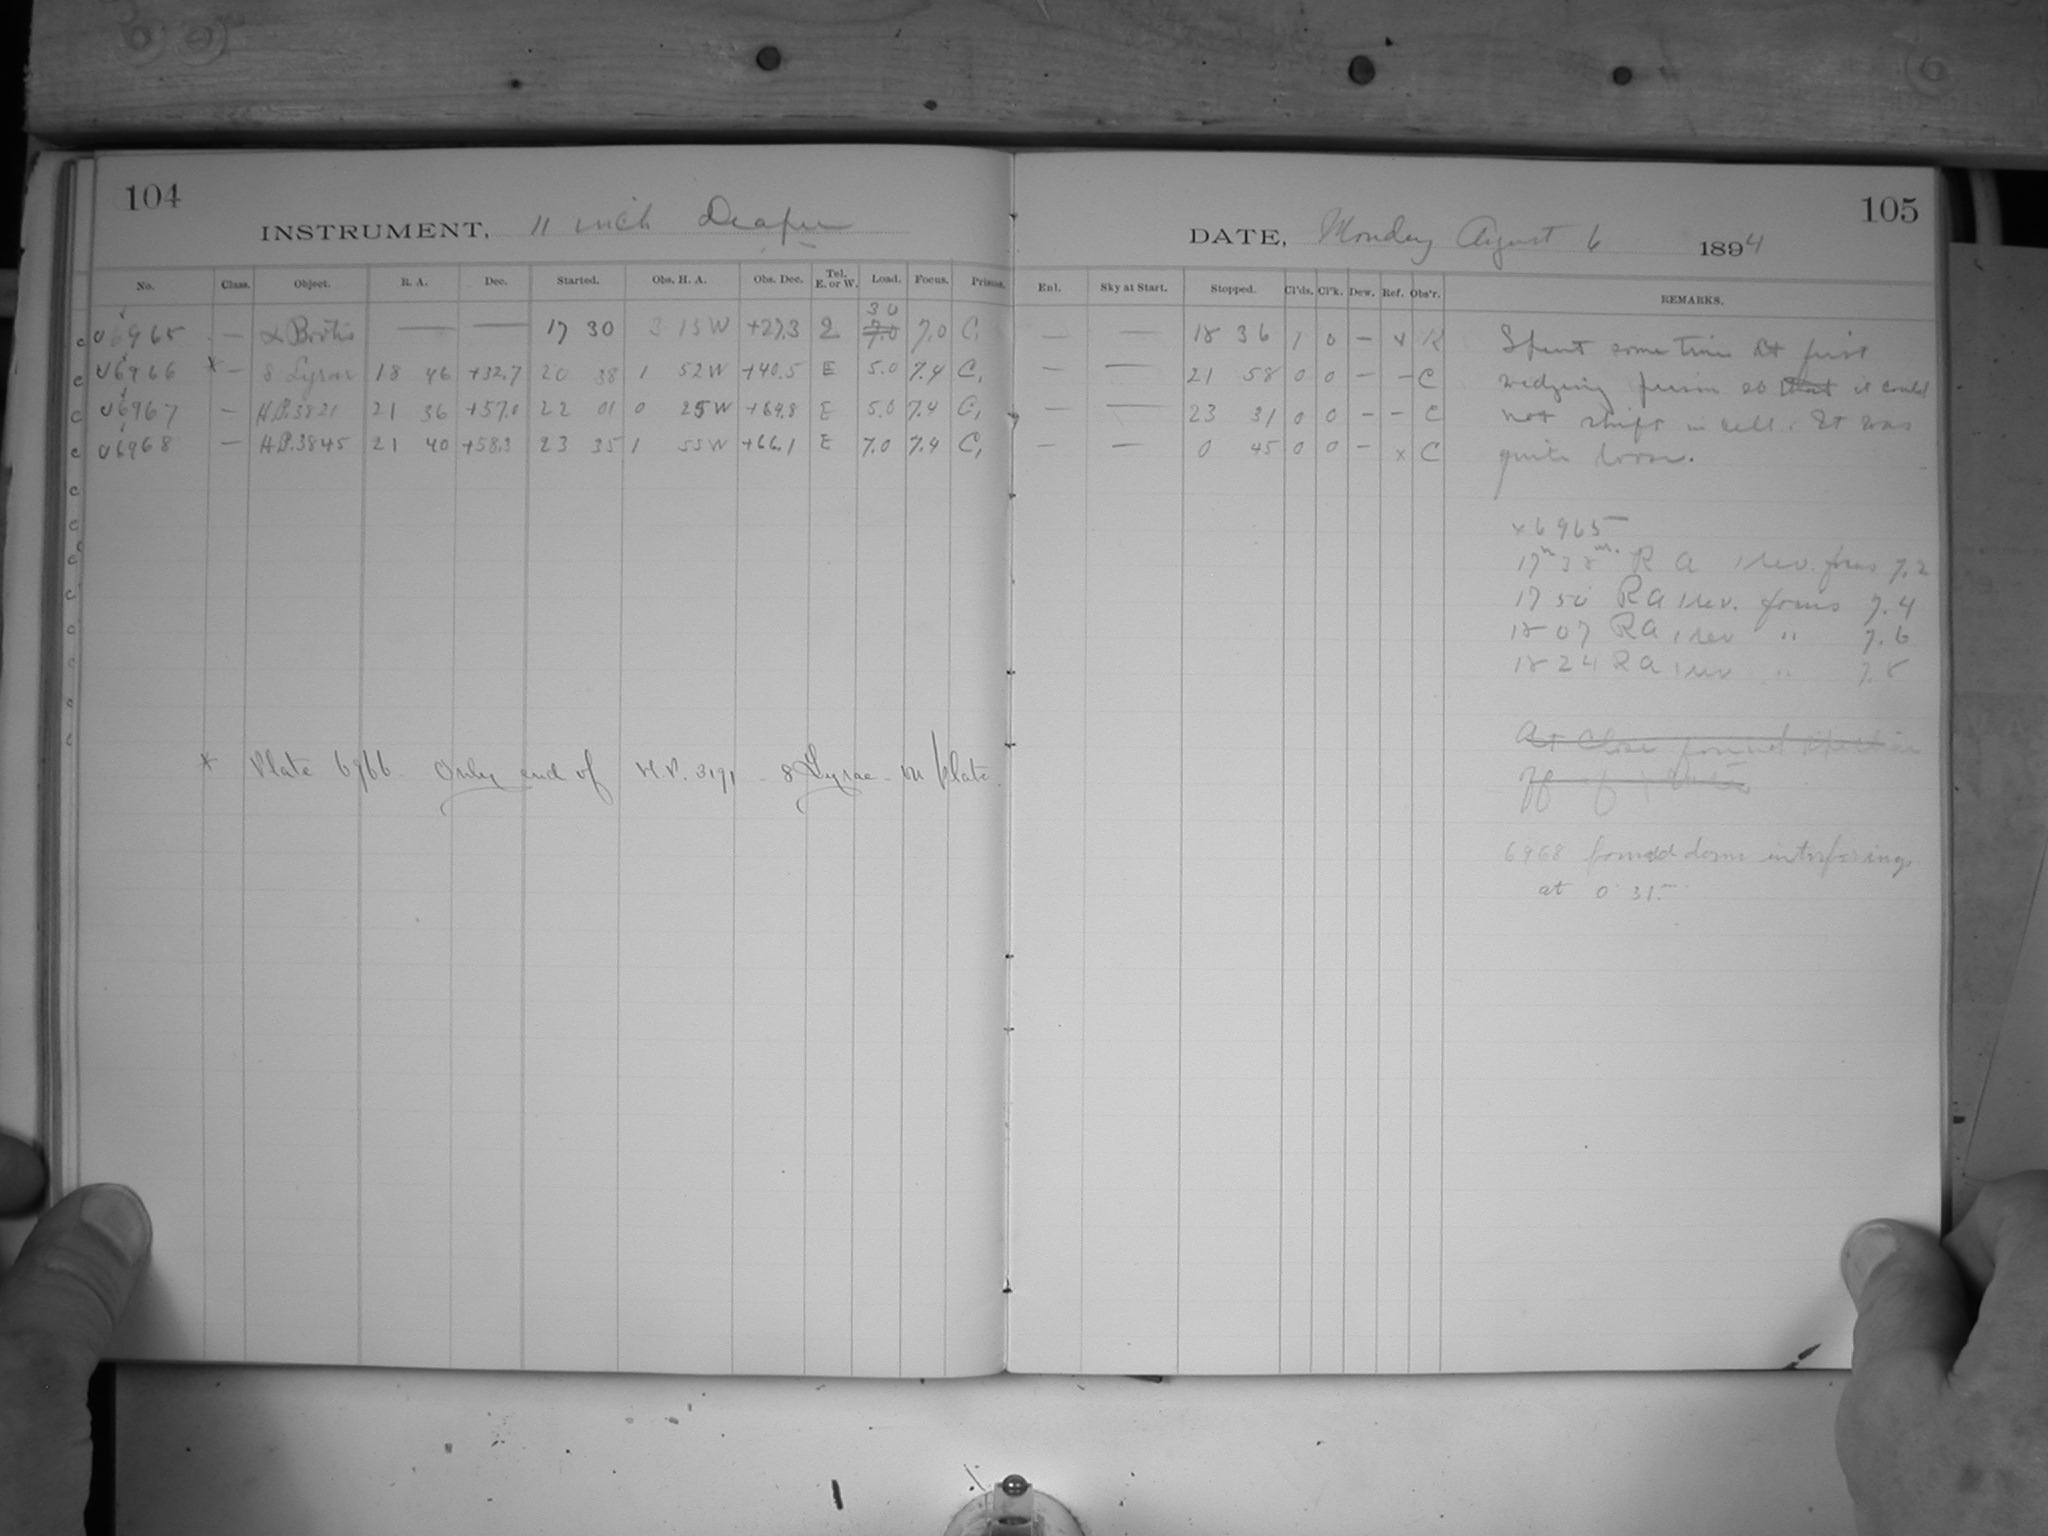 104
INSTRUMENT, 11 inch Draper
No. Class. Object. R. A. Dec. Started. Obs. H. A. Obs. Dec. Tel. E. or W. Load. Focus. Prisms.
30
c 6965 — α Bootis — — 17 30 3 15 W +27.3 E 7.0 7.0 C,
c 6966 * — δ Lyrae 18 46 +32.7 20 38 1 52 W +40.5 E 5.0 7.4 C,
c 6967 — H.P. 3821 21 36 +57.0 22 01 0 25 W +64.8 E 5.0 7.4 C,
c 6968 — H.P. 3845 21 40 +58.3 23 35 1 55 W +66.1 E 7.0 7.4 C,
c
c
c
c
c
c
c
c
* Plate 6966 Only end of H.P. 3191 - δ Lyrae - on plate.
105
DATE, Monday August 6 1894
Enl. Sky at Start. Stopped. Cl'ds. Cl'k. Dew. Ref. Obs'r. REMARKS.
— — 18 36 1 0 — x K
— — 21 58 0 0 — — C
— — 23 31 0 0 — — C
— — 0 45 0 0 — x C
Spent some time at first
wedging prism so that it could
not shift in cell. It was
quite loose.
x 6965
17h 38m. R A 1 rev. focus 7.2
17 50 R A 1 rev. focus 7.4
18 07 R A 1 rev " 7.6
18 24 R A 1 rev " 7.8
At close found
6968 found dome interfering
at 0 35